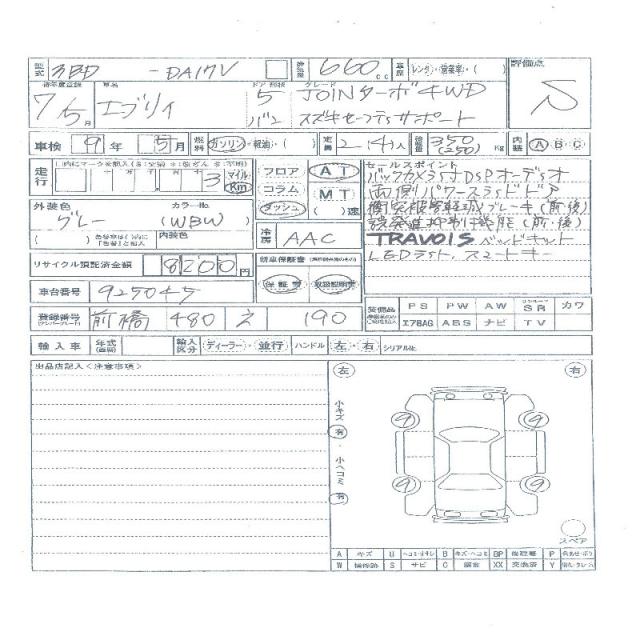 型式 3BD -DA17V 排気量 660cc 車歴 レンタ・営業車・( ) 評価点 S
初年度登録 7/5月 車名 エブリイ ドア 形状 5 バン グレード JOINターボ4WD
スズキセーフティサポート
車検 9年5月 燃料 ガソリン・軽油・( ) 定員 2-(4)人 積載量 350(250)Kg 内装 A B C
走行 3 マイル Km フロア コラム ダッシュ AT MT ( )速
セールスポイント
バックカメラ付DSPオーディオ
両側パワースライドドア
衝突被害軽減ブレーキ(前・後)
誤発進抑制機能(前・後)
TRAVOIS ベッドキット
LEDライト、スマートキー
外装色 グレー カラーNo. (WBW)
( ) 内装色
冷房 AAC
リサイクル預託済金額 8200円
新車保証書 保証書・取扱説明書
車台番号 925045
登録番号 (ナンバープレート) 前橋 480 え 190
装備品 PS PW AW SR カワ
エアBAG ABS ナビ TV
輸入車 年式 輸入区分 ディーラー・並行 ハンドル 左・右 シリアルNo.
出品店記入〈注意事項〉
左 右
小キズ 有・小ヘコミ 有
9 9
9 9
スペア
A キズ U ヘコミ B キズ・ヘコミ BP P
W 補修跡 S サビ C 腐食 XX 交換済 Y